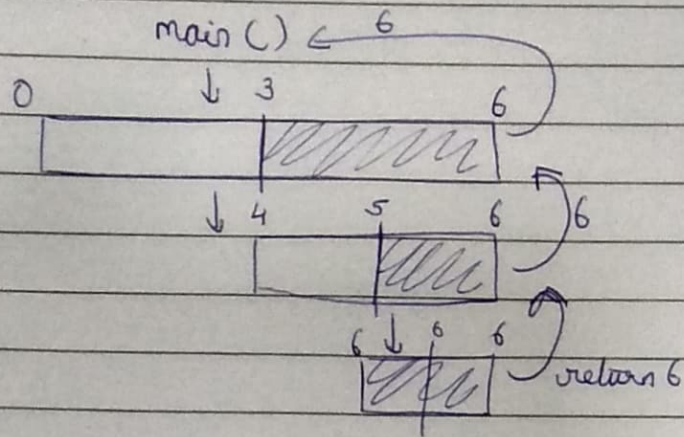 main() 6
0 3 6
4 5 6 6
6 6 6 return 6